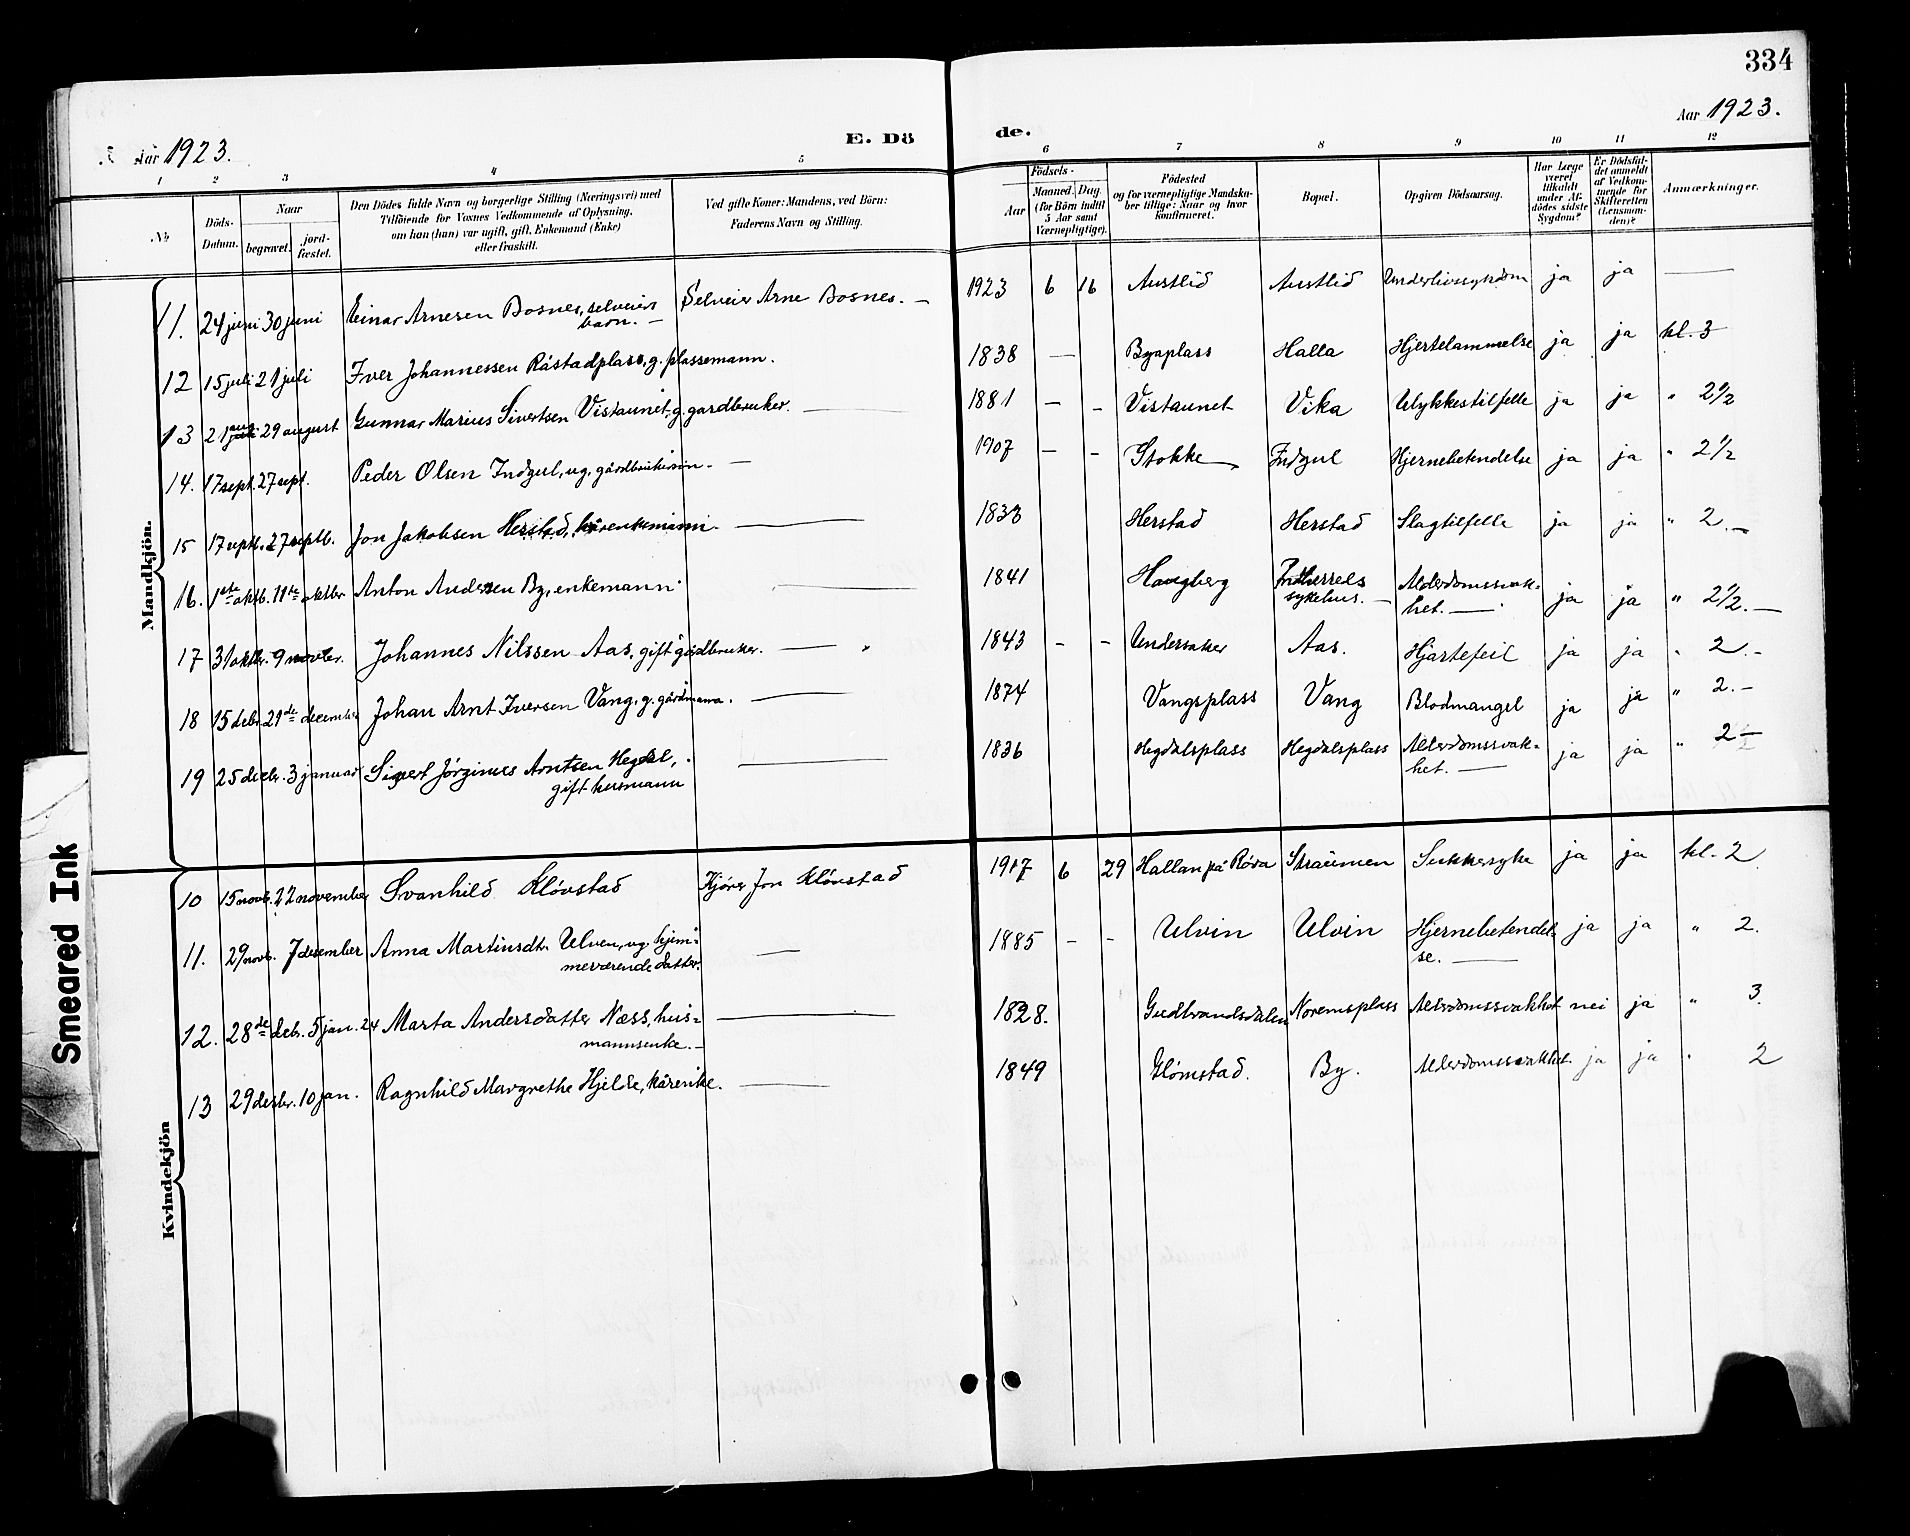 334
Aar 1923.
Aar 1923.
E. Dö
de.
1 2 3 4 5 6 7 8 9 10 11 12
№
Döds-Datum.
Naar
begravet.
jord-fæstet.
Den Dödes fulde Navn og borgerlige Stilling (Næringsvei) med
Tilföiende for Voxnes Vedkommende af Oplysning,
om han (hun) var ugift, gift, Enkemand (Enke)
eller fraskilt.
Ved gifte Koner: Mandens, ved Börn:
Faderens Navn og Stilling.
Födsels-
Aar
Maaned. Dag.
(for Börn indtil
5 Aar samt
Værnepligtige).
Födested
og for værnepligtige Mandska-
ber tillige: Naar og hvor
konfirmeret.
Bopæl.
Opgiven Dödsaarsag.
Har Læge
været
tilkaldt
under Af-
dödes sidste
Sygdom?
Er Dödsfal-
det anmeldt
af Vedkom-
mende for
Skifteretten
(Lensman-
den)?
Anmærkninger.
Mandkjön.
11. 24 juni 30 juni Einar Arnesen Bosnes, selveiers Selveier Arne Bosnes. — 1923 6 16 Austlid Austlid Underlivssykdom ja ja —
barn. —
12 15 juli 21 juli Iver Johannessen Råstadplass, g. plassemann. 1838 — Byaplass Halla Hjertelammelse ja ja kl. 3
13 21 aug juli 29 august Gunnar Marius Sivertsen Vistaunet, g. gardbruker. — 1881 — - Vistaunet Vika Ulykkestilfelle ja ja " 2 1/2
14. 17 sept. 27 sept. Peder Olsen Indgul, ug. gårdbrukersøn. — 1907 — - Stokke Indgul Hjernebetendelse ja ja " 2 1/2
15 17 septb. 27 septb. Jon Jakobsen Herstad, kårenkemann. — 1833 Herstad Herstad Slagtilfelle ja ja " 2. —
16. 1ste oktb. 11te oktbr Anton Andersen By, enkemann. — 1841 Haugberg Indherreds Alderdomssvak-
sykehus. — het. — ja ja " 2 1/2. —
17 31 oktbr. 9 novbr. Johannes Nilssen Aas, gift gårdbruker. — 1843 - - Undersaker Aas. Hjartefeil ja ja " 2. -
18 15 debr. 21de december Johan Arnt Iversen Vang, g. gårdmann. — 1874 Vangsplass Vang Blodmangel ja ja " 2. -
19 25 decbr. 3 januar Sivert Jørginus Arntsen Hegdal, — 1836 Hegdalsplass Hegdalsplass Alderdomssvak- ja ja " 2
gift husmann het. —
Kvindekjön
10 15 novb. 22 november Svanhild Kløvstad Kjører Jon Kløvstad 1917 6 29 Hallan på Røra Straumen Sukkersyke ja ja kl. 2
11. 29 novb. 7 desember Anna Martinsdtr Ulven, ug hjem- — 1885 - - Ulvin Ulvin Hjernebetendel- ja ja " 2.
meværende datter. se. —
12. 28de debr. 5 jan. 24 Marta Andersdatter Næss, hus- — 1828. Gudbrandsdalen Noremsplass Alderdomssvakhet nei ja " 3.
mannsenke. —
13 29 desbr. 10 jan. Ragnhild Margrethe Hjelde, kårenke. — 1849 Glømstad. By. Alderdomssvakhet. ja ja " 2
Smeared Ink